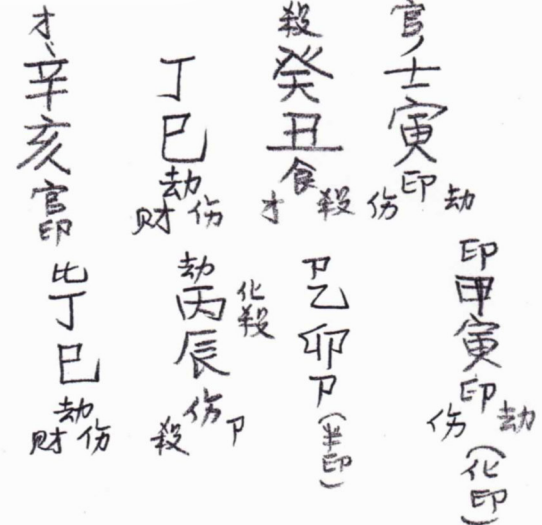 官壬寅印
伤 劫
殺癸丑食
才 殺
丁巳劫
财 伤
才辛亥官印
印甲寅印
伤 劫
(化印)
卩乙卯卩(半印)
劫丙辰伤
化殺
殺 卩
比丁巳劫
财 伤